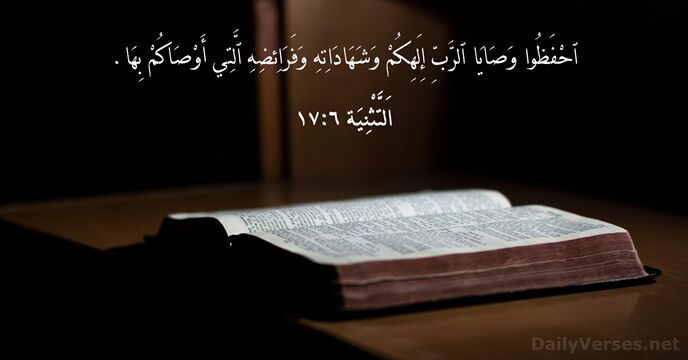 ٱحْفَظُوا وَصَايَا ٱلرَّبِّ إِلَهِكُمْ وَشَهَادَاتِهِ وَفَرَائِضِهِ ٱلَّتِي أَوْصَاكُمْ بِهَا .
اَلتَّثْنِيَة ١٧:٦
DailyVerses.net